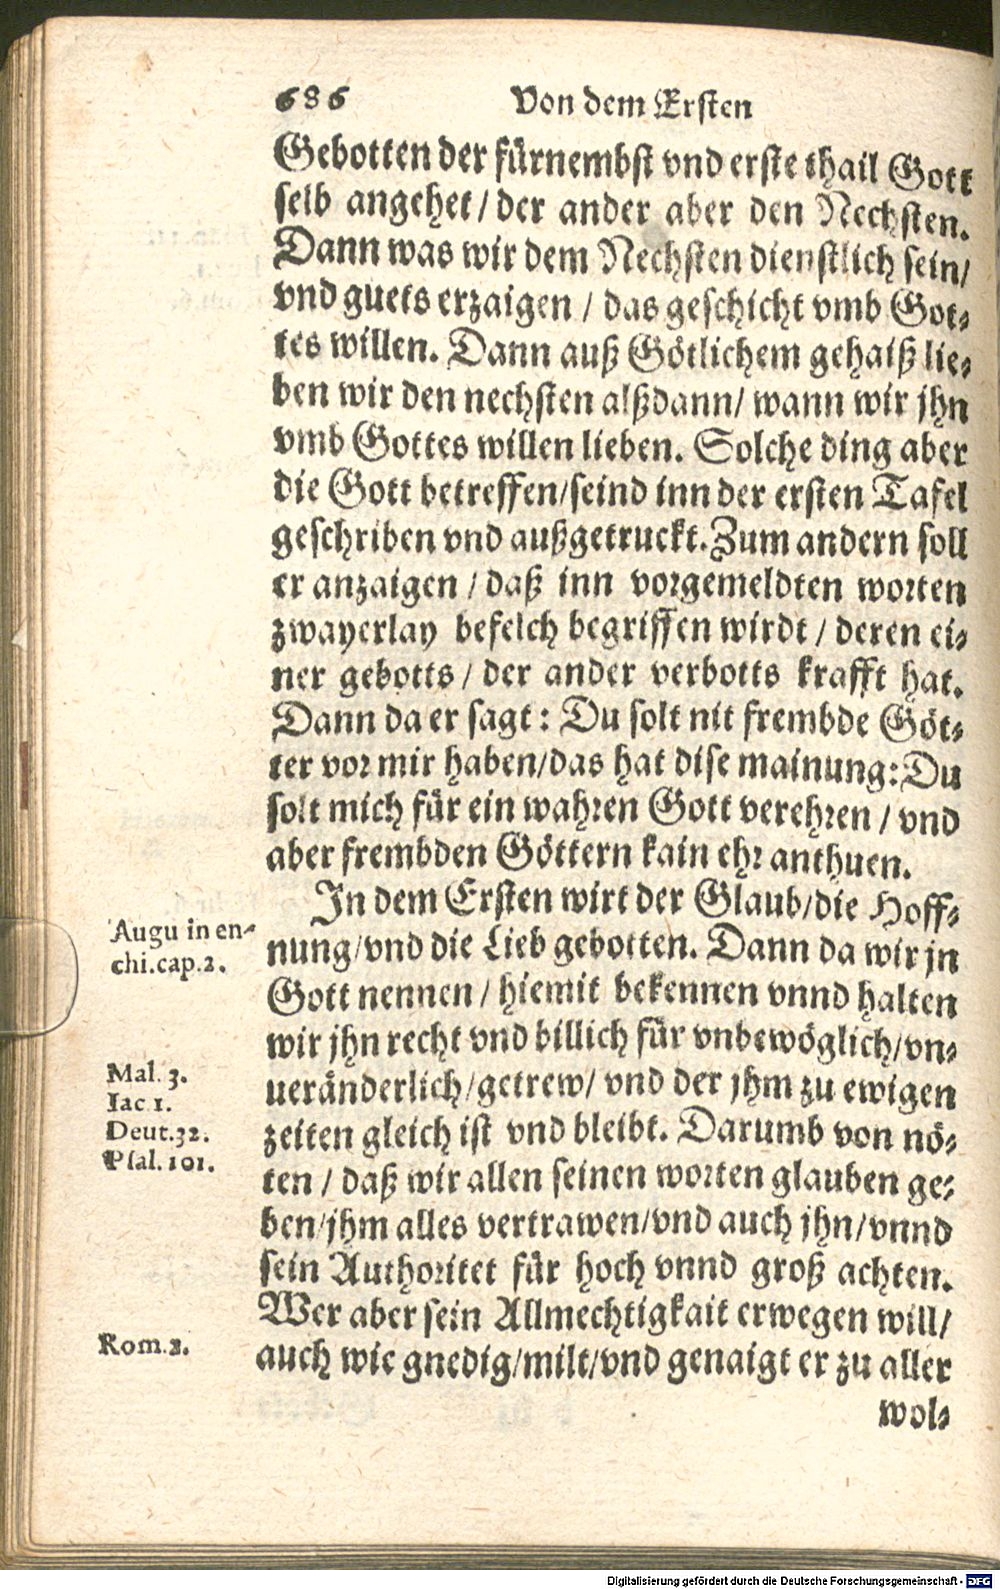 686 Von dem Ersten
Gebotten der fürnembst vnd erste thail Gott
selb angehet / der ander aber den Nechsten.
Dann was wir dem Nechsten dienstlich sein /
vnd guets erzaigen / das geschicht vmb Got-
tes willen. Dann auß Götlichem gehaiß lie-
ben wir den nechsten alßdann / wann wir jhn
vmb Gottes willen lieben. Solche ding aber
die Gott betreffen / seind inn der ersten Tafel
geschriben vnd außgetruckt. Zum andern soll
er anzaigen / daß inn vorgemeldten worten
zwayerlay befelch begriffen wirdt / deren ei-
ner gebotts / der ander verbotts krafft hat.
Dann da er sagt: Du solt nit frembde Göt-
ter vor mir haben / das hat dise mainung: Du
solt mich für ein wahren Gott verehren / vnd
aber frembden Göttern kain ehr anthuen.
In dem Ersten wirt der Glaub / die Hoff-
Augu in en-
chi.cap.2.
nung / vnd die Lieb gebotten. Dann da wir jn
Gott nennen / hiemit bekennen vnnd halten
wir jhn recht vnd billich für vnbewöglich / vn-
Mal. 3.
Iac 1.
Deut.32.
Psal.101.
ueränderlich / getrew / vnd der jhm zu ewigen
zeiten gleich ist vnd bleibt. Darumb von nö-
ten / daß wir allen seinen worten glauben ge-
ben / jhm alles vertrawen / vnd auch jhn / vnnd
sein Authoritet für hoch vnnd groß achten.
Wer aber sein Allmechtigkait erwegen will /
Rom.2.
auch wie gnedig / milt / vnd genaigt er zu aller
wol-
Digitalisierung gefördert durch die Deutsche Forschungsgemeinschaft - DFG